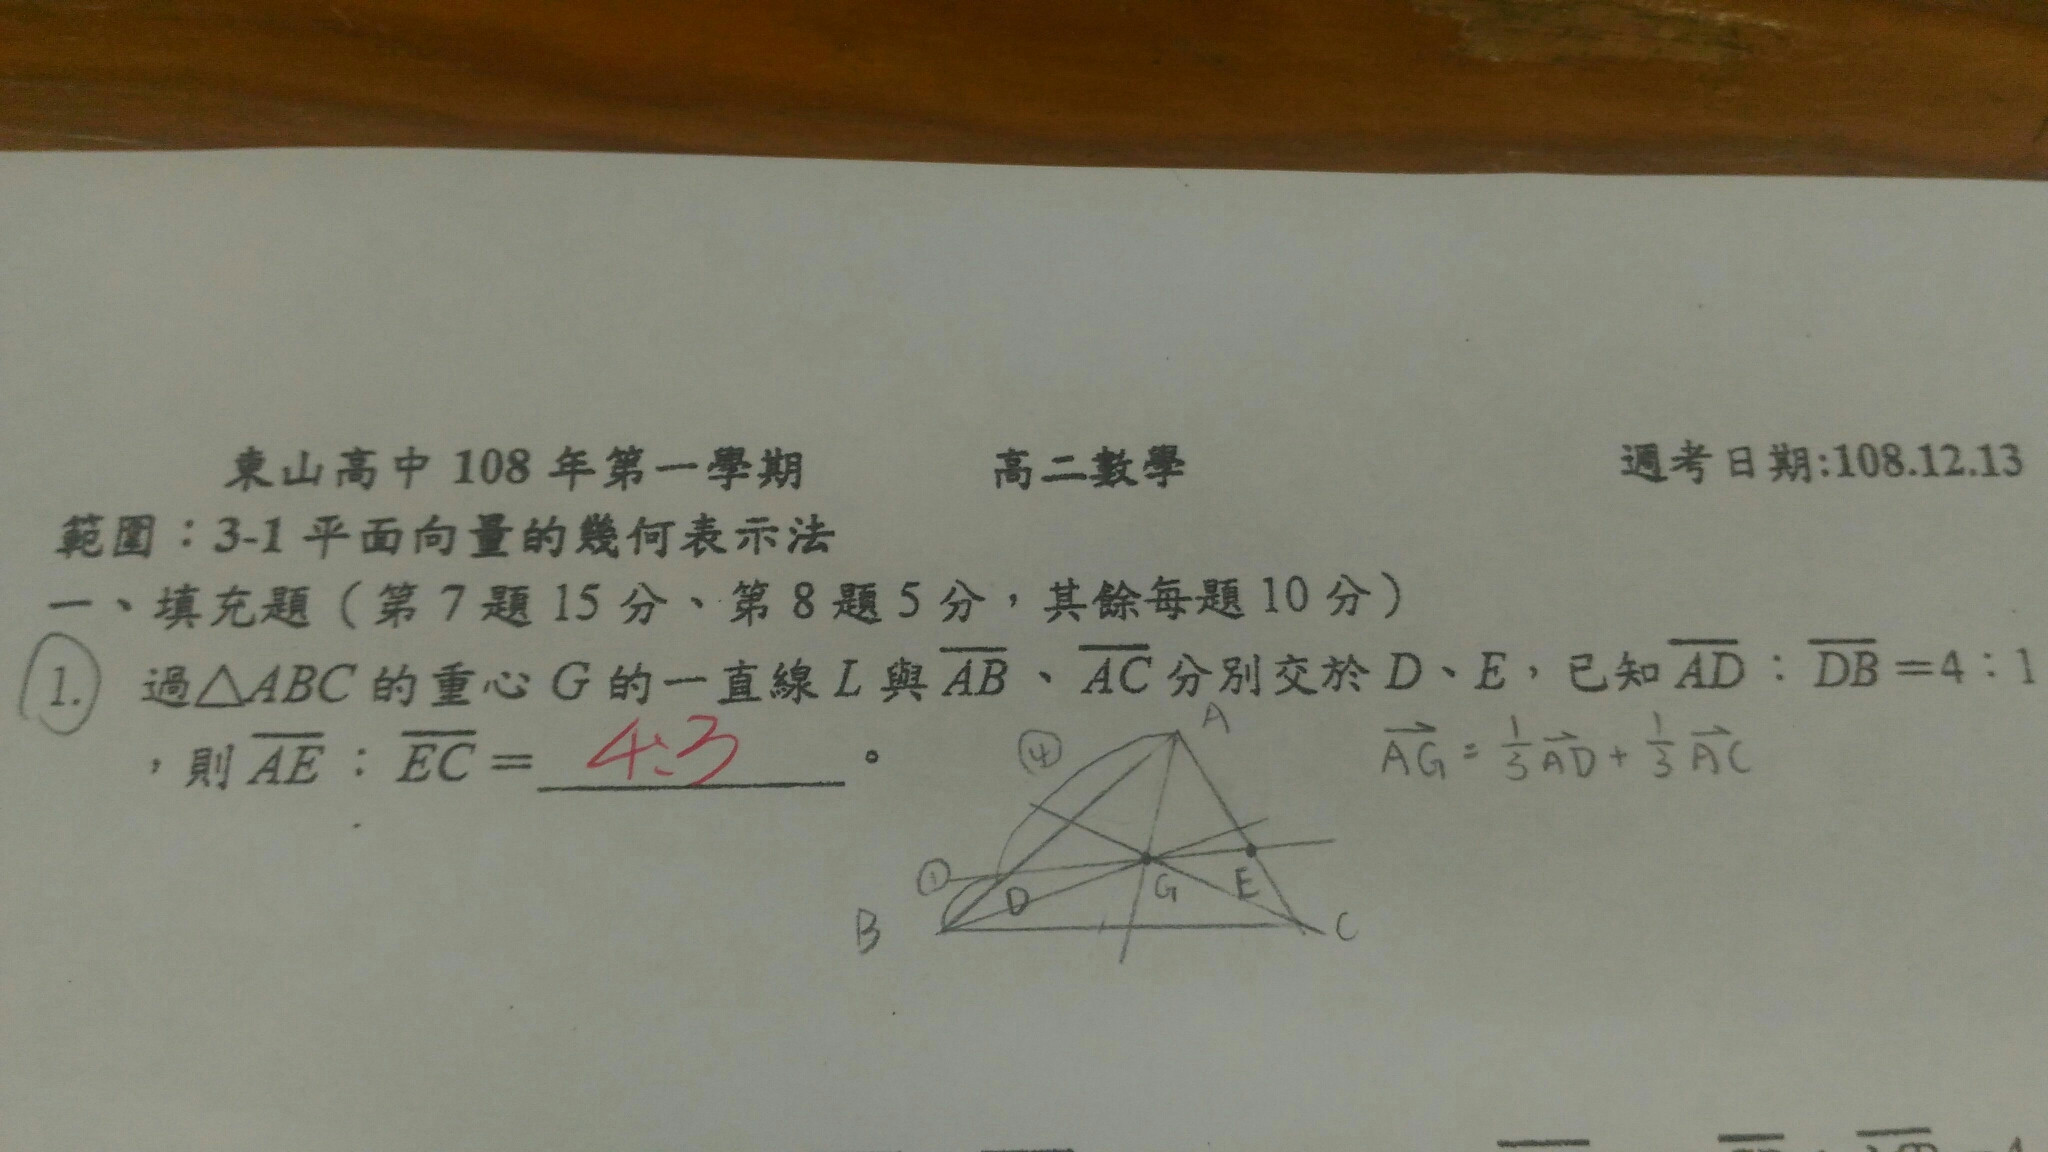 東山高中 108 年第一學期 高二數學 週考日期:108.12.13
範圍：3-1 平面向量的幾何表示法
一、填充題（第 7 題 15 分、第 8 題 5 分，其餘每題 10 分）
1. 過△ABC 的重心 G 的一直線 L 與 AB、AC 分別交於 D、E，已知 AD：DB＝4：1
，則 AE：EC＝ 4:3 。
AG = 1/3 AD + 1/3 AC
A
④
①
D
G
E
B
C